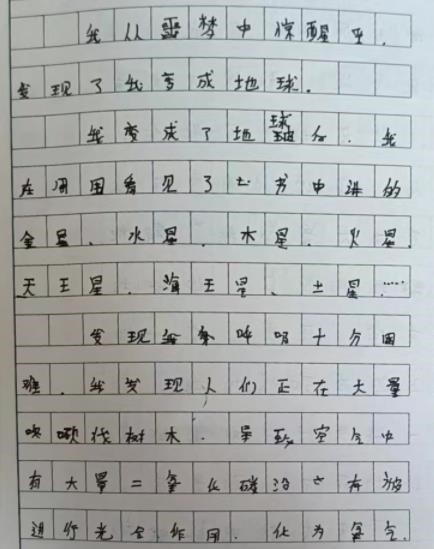 我从噩梦中惊醒
发现了我变成地球。
我变成了地球后，我
在周围看见了书中讲的
金星、水星、木星、火星、
天王星、海王星、土星……
发现我呼吸十分困
难，我发现人们正在大量
砍伐树木，导致空气中
有大量二氧化碳没有被
进行光合作用，化为氧气，